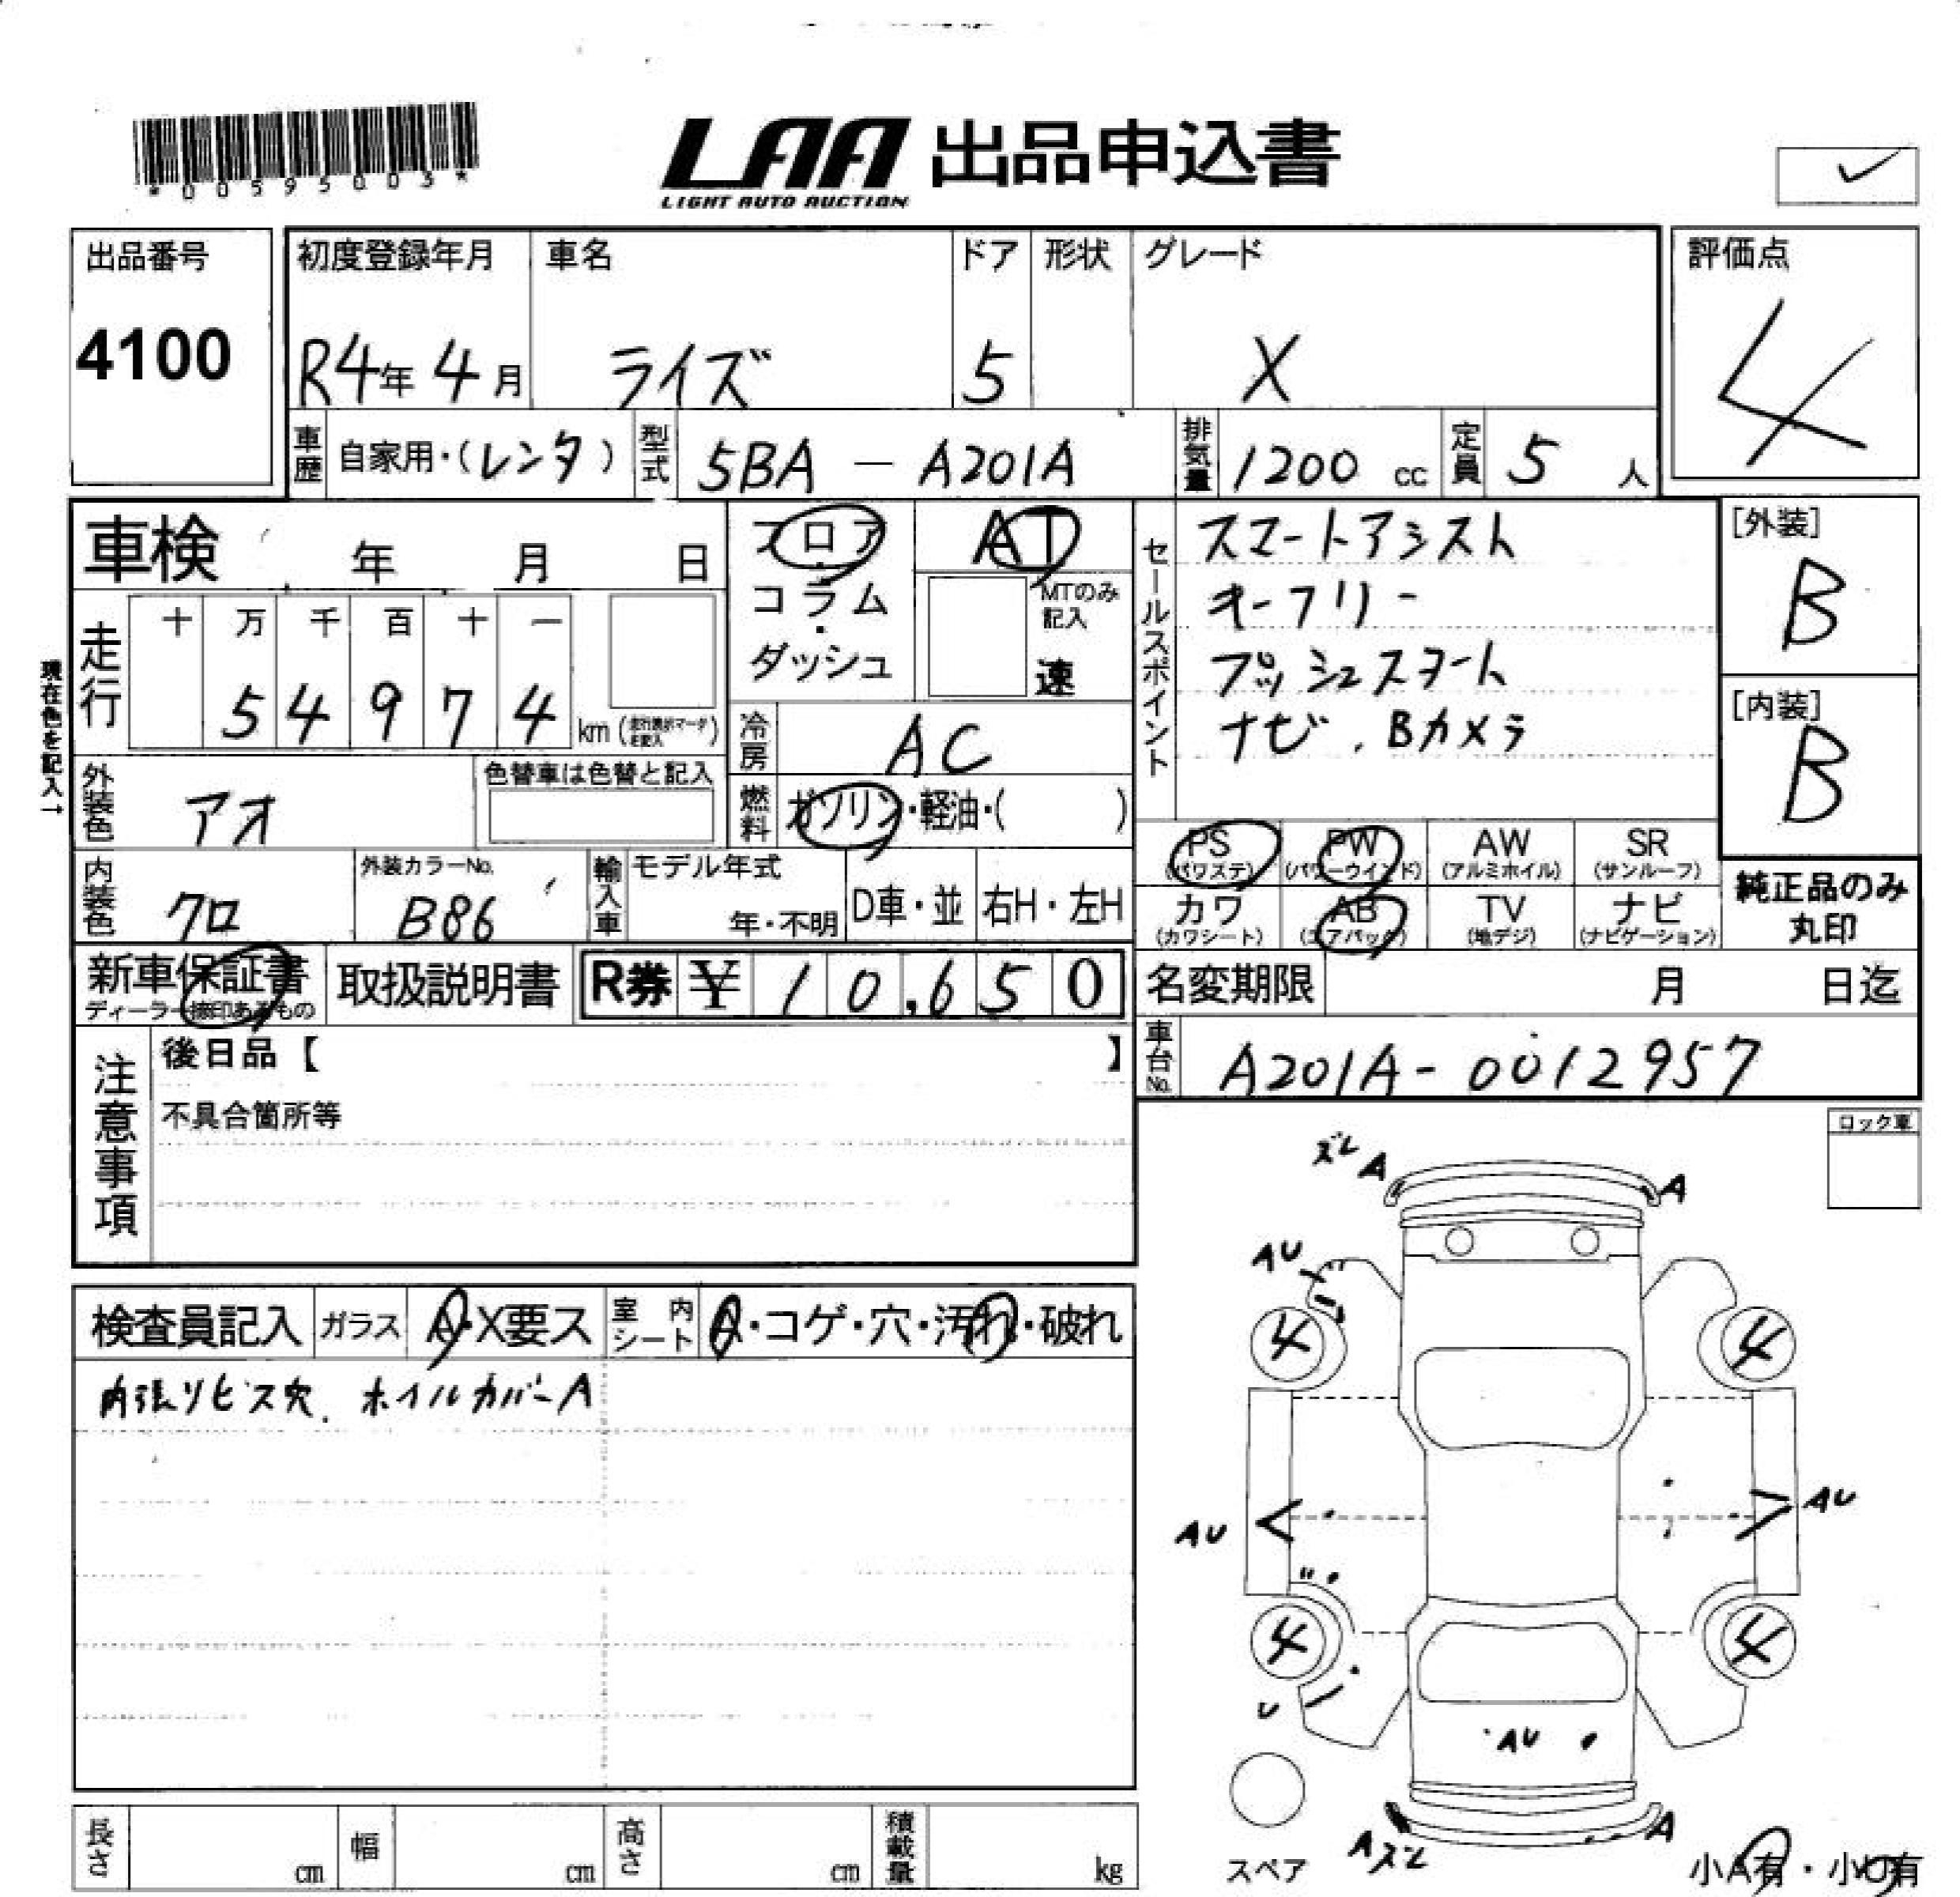 *00595003*
LAA 出品申込書
LIGHT AUTO AUCTION
出品番号
4100
初度登録年月
R4年 4月
車名
ライズ
ドア
5
形状
グレード
X
評価点
4
車歴 自家用・(レンタ)
型式 5BA - A201A
排気量 1200 cc
定員 5 人
車検 年 月 日
フロア
・
コラム
・
ダッシュ
AT
MTのみ記入
速
セールスポイント
スマートアシスト
キーフリー
プッシュスタート
ナビ、Bカメラ
[外装]
B
[内装]
B
現在色を記入→
走行
十 万 千 百 十 一
5 4 9 7 4 km
冷房 AC
外装色 アオ
色替車は色替と記入
燃料 ガソリン・軽油・( )
内装色 クロ
外装カラーNo.
B86
輸入車
モデル年式
年・不明
D車・並
右H・左H
PS (パワステ)
PW (パワーウインド)
AW (アルミホイル)
SR (サンルーフ)
カワ (カワシート)
AB (エアバック)
TV (地デジ)
ナビ (ナビゲーション)
純正品のみ
丸印
新車保証書
ディーラー捺印あるもの
取扱説明書
R券 ¥ 10,650
名変期限 月 日迄
車台No. A201A-0012957
注意事項
後日品【 】
不具合箇所等
ロック車
検査員記入
ガラス A・X要ス
室内シート A・コゲ・穴・汚れ・破れ
内張りビス穴、ホイルカバーA
ズレ A
A
AU
4
4
AU
AU
4
4
U
AU
Aズレ
A
スペア
小A有・小U有
長さ cm
幅 cm
高さ cm
積載量 kg